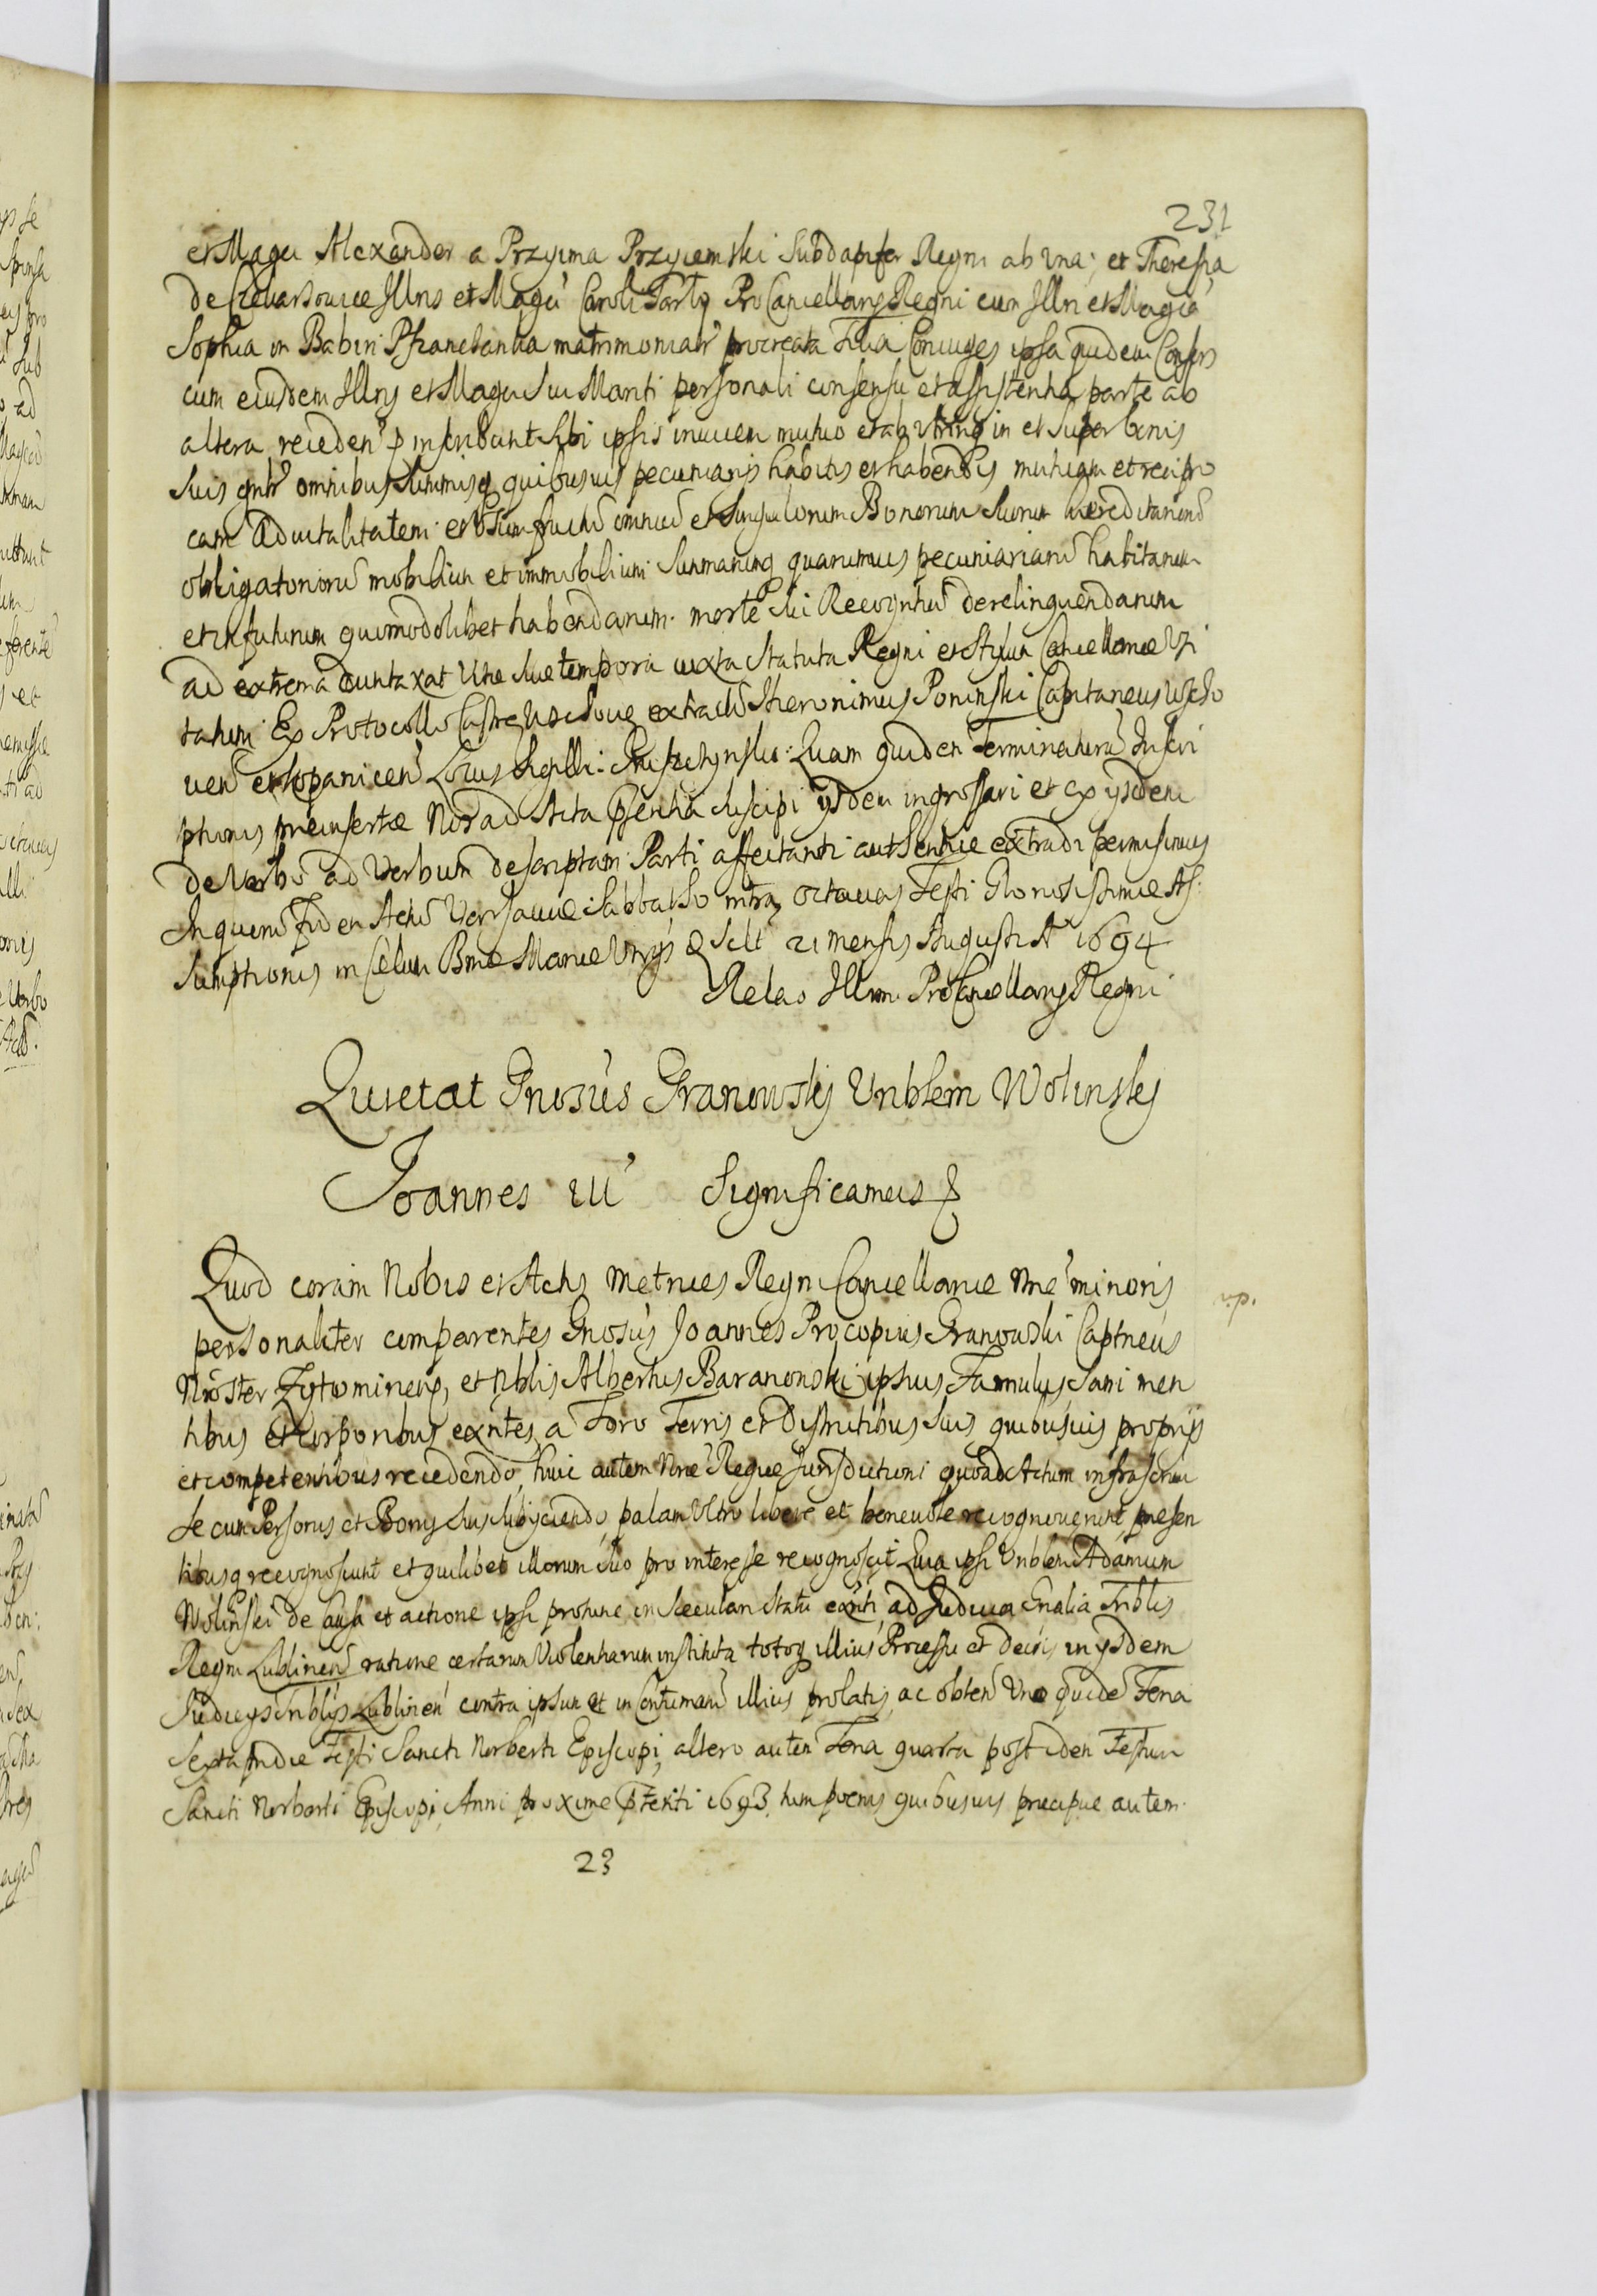 231
et Magci Alexander a Przyima Przyiemski Subdapifer Regni ab una, et Theresia
de Czekarzowice Illris et Magci Caroli Tarło ProCancellarij Regni cum Illri et Magca
Sophia in Babin Pszonczanka matrimonialr procreata Filia Coniuges ipsa quidem Consors
cum eiusdem Illris et Magci sui Mariti personali consensu et assistentia parte ab
altera recedens inscribunt sibi ipsis invicem mutuo et ab utrinq in et super bonis
suis gntr omnibus summisq quibusvis pecuniarijs habitis et habendis mutuam et recipro
cam Advitalitatem et Usumfructu omniu et singulorum Bonorum suorum haereditarioru
obligatorioru mobilium et immobilium summarumq quarumvis pecuniariaru habitarum
et in futurum quomodolibet habendarum morte sui Recogntiu derelinquendarum
ad extrema duntaxat vitae suae tempora iuxta Statuta Regni et Stylum Cancellariae Usi
tatum Ex Protocollo Castren extractu Hieronimus Poninski Capitaneus
ven et Kopanicen Locus Sigilli: Quam quidem Terminatura Inscri
ptionis praeinsertae Nos ad Acta psentia suscipi ijsdem ingrossari et ex ijsdem
de Verbo ad Verbum descriptam Parti affectanti authentice extradi permisimus
In quoru Fidem Actu Varsaviae Sabbatho intra octavas Festi Gloriosissimae As:
sumptionis in Celum Bmae Mariae Vrgis Sclt 21 mensis Augusti A 1694
Relao Illmi ProCancellarij Regni
Quietat Gnosus Granowski Unblem Wolinski
Joannes III Significamus &
Quod coram Nobis et Actis Metrices Regni Cancellariae Nrae minoris
personaliter comparentes Gnosus Joannes Procopius Granowski Captneus
Noster Zytomirens, et Nblis Albertus Baranowski ipsius Famulus sani men
tibus et corporibus exntes, a Foro Terris et Districtibus suis quibusvis proprijs
et competentibus recedendo, huic autem Nrae Regiae Jurisdictioni quoad Actum infrascrm
se cum Personis et Bonis suis subijciendo, palam Ultro libere et benevole recognoverunt praesen
tibusq recognoscunt et quilibet illorum suo pro interesse recognoscit Quia ipsi Unblem Adamum
Wolinski de Causa et actione ipsi protunc in Saeculari Statu exnti, ad Judicia Gnalia Triblis
Regni Lublinen ratione certarum Violentiarum instituta totoq illius Processu et Decis in ijsdem
Judicijs Triblis Lublinen contra ipsum et in Contumam illius prolatis, ac obten Uno quide Feria
Sexta pridie Festi Sancti Norberti Episcopi, altero autem Feria quarta post idem Festum
Sancti Norberti Episcopi Anni proxime pteriti 1693, tum poenis quibusvis praecipue autem
23